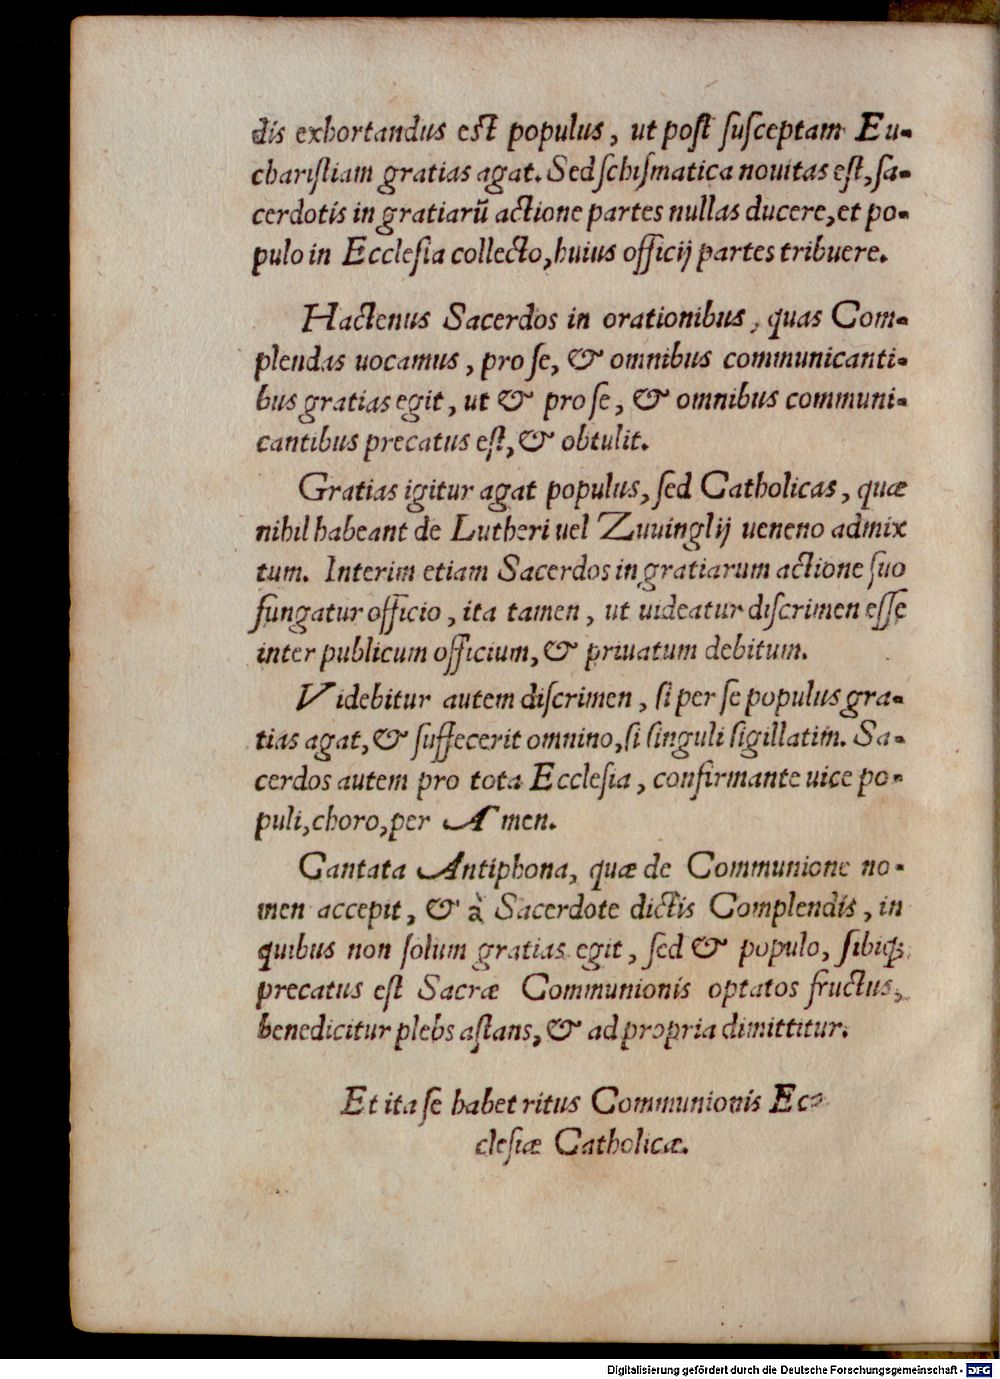 dis exhortandus est populus, ut post susceptam Eu-
charistiam gratias agat. Sed schismatica nouitas est, sa-
cerdotis in gratiarū actione partes nullas ducere, et po-
pulo in Ecclesia collecto, huius officij partes tribuere.
Hactenus Sacerdos in orationibus, quas Com-
plendas uocamus, pro se, & omnibus communicanti-
bus gratias egit, ut & pro se, & omnibus communi-
cantibus precatus est, & obtulit.
Gratias igitur agat populus, sed Catholicas, quæ
nihil habeant de Lutheri uel Zuuinglij ueneno admix
tum. Interim etiam Sacerdos in gratiarum actione suo
fungatur officio, ita tamen, ut uideatur discrimen esse
inter publicum officium, & priuatum debitum.
Videbitur autem discrimen, si per se populus gra-
tias agat, & suffecerit omnino, si singuli sigillatim. Sa-
cerdos autem pro tota Ecclesia, confirmante uice po-
puli, choro, per Amen.
Cantata Antiphona, quæ de Communione no-
men accepit, & à Sacerdote dictis Complendis, in
quibus non solum gratias egit, sed & populo, sibiq;
precatus est Sacræ Communionis optatos fructus,
benedicitur plebs astans, & ad propria dimittitur.
Et ita se habet ritus Communionis Ec-
clesiæ Catholicæ.
Digitalisierung gefördert durch die Deutsche Forschungsgemeinschaft - DFG